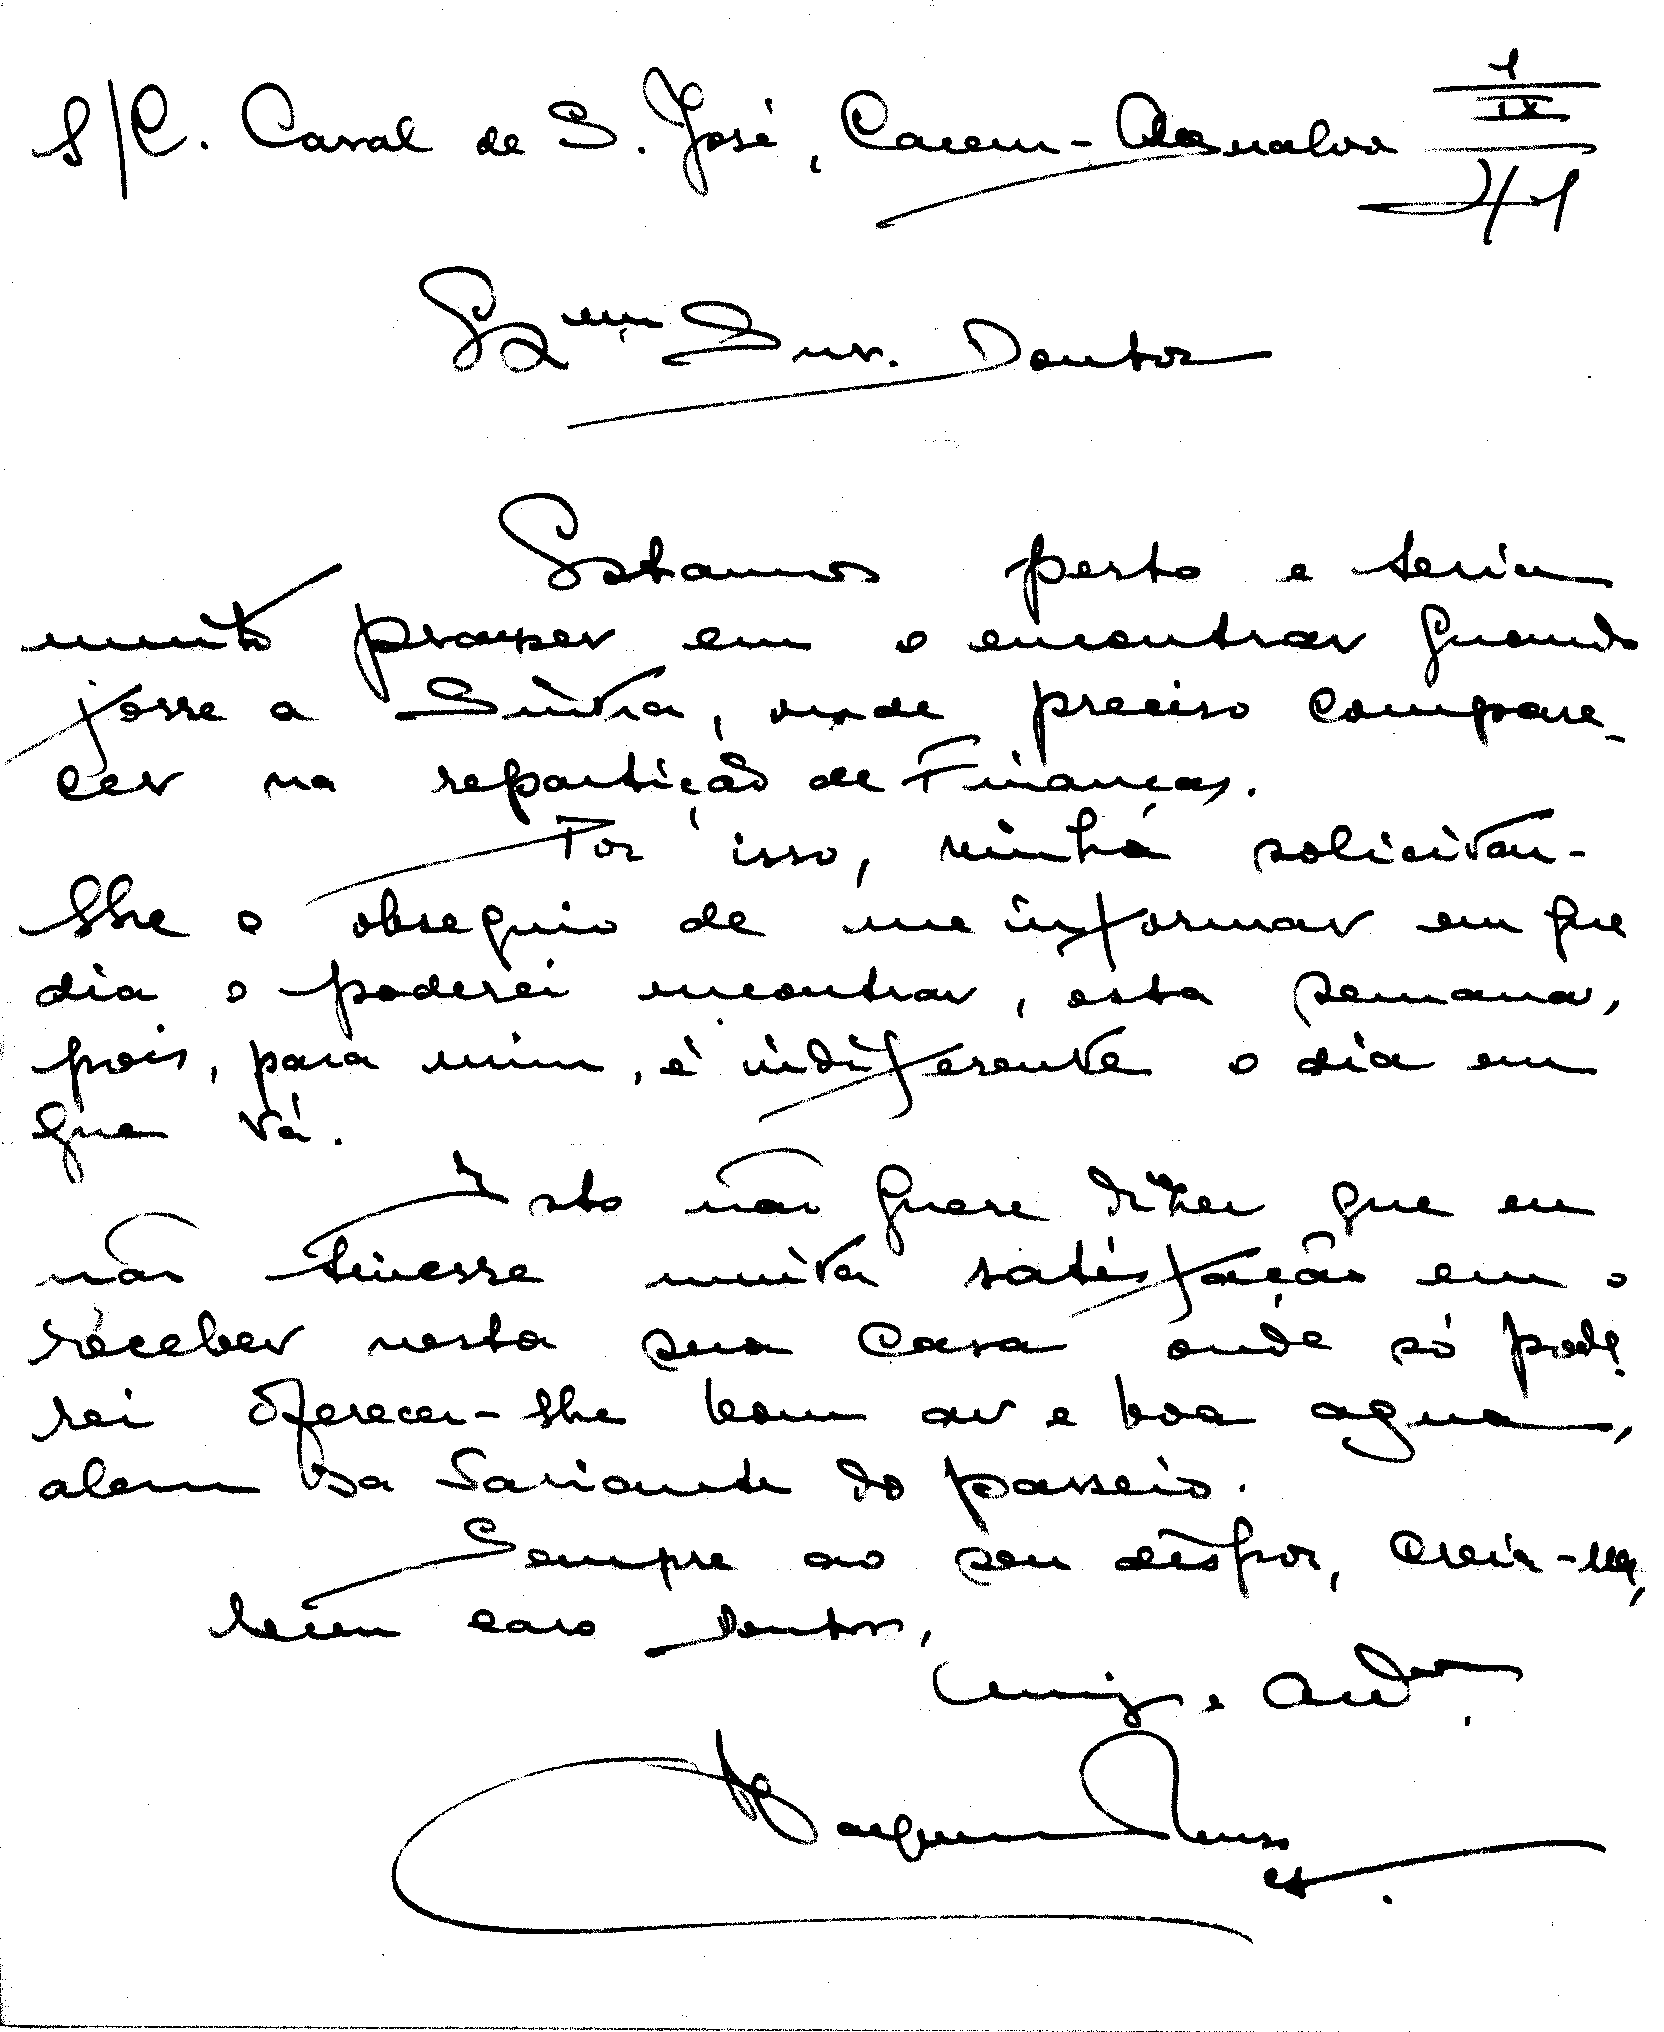 S/C. Casal de S. José, Cacem - 1/IX/41
Exmo Snr. Doutor
Estamos perto e teria
muito prazer em o encontrar quando
fosse a Sintra, onde preciso compare-
cer na repartição de Finanças.
Por isso, vinha solicitar-
lhe o obsequio de me informar em que
dia o poderei encontrar, esta semana,
pois, para mim, é indiferente o dia em
que vá.
Isto não quere dizer que eu
não tivesse muita satisfação em o
receber nesta sua casa onde só pode-
rei oferecer-lhe bom ar e boa agua,
alem da variante do passeio.
Sempre ao seu dispor, creia-me,
meu caro Doutor,